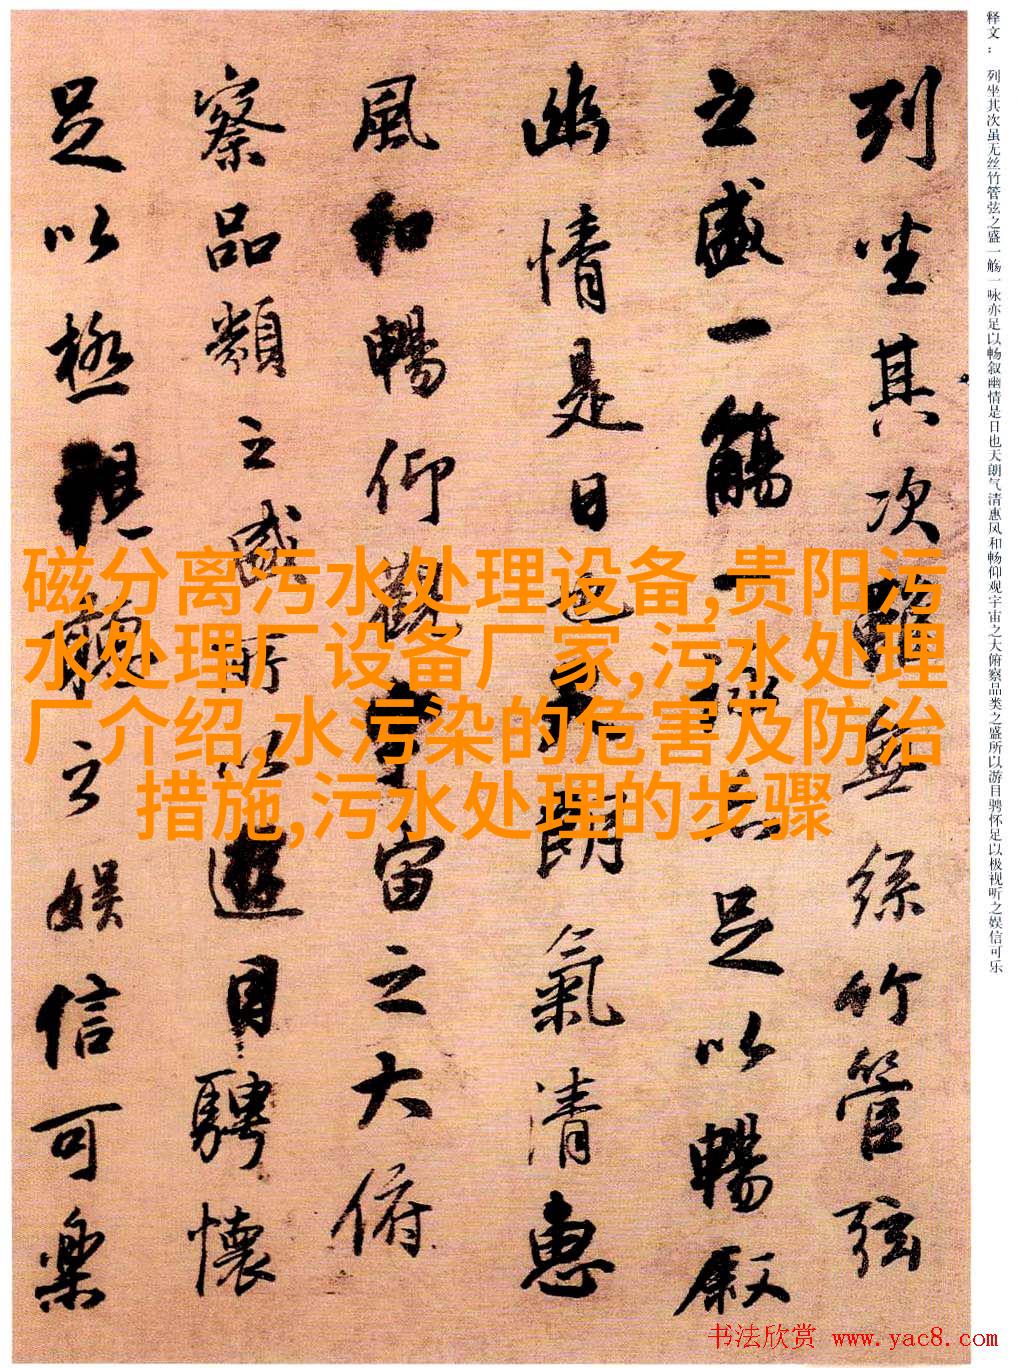 释文： 列坐其次虽无丝竹管弦之盛一觞一咏亦足以畅叙幽情是日也天朗气清惠风和畅仰观宇宙之大俯察品类之盛所以游目骋怀足以极视听之娱信可乐
列坐其次雖無絲竹管弦
之盛一觴一詠亦足以暢叙
幽情是日也天朗氣清惠
風和暢仰觀宇宙之大俯
察品類之盛所以遊目騁懷
足以極視聽之娛信可樂
磁分离污水处理设备,贵阳污
水处理厂设备厂家,污水处理
厂介绍,水污染的危害及防治
措施,污水处理的步骤
书法欣赏 www.yac8.com